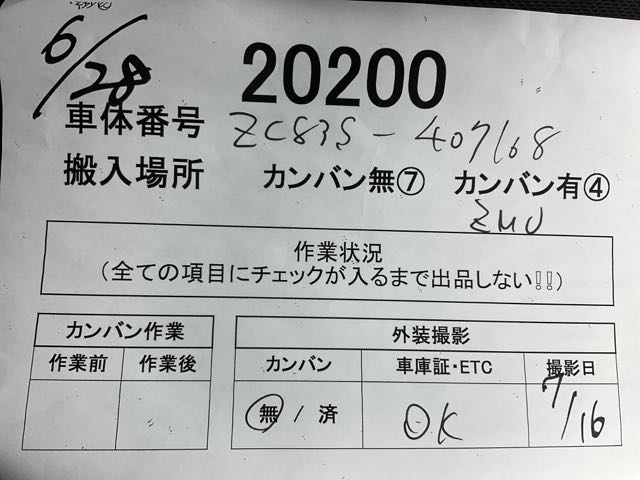 6/28
20200
車体番号 ZC83S-407168
搬入場所 カンバン無⑦ カンバン有④
ZMU
作業状況
(全ての項目にチェックが入るまで出品しない!!)
カンバン作業 外装撮影
作業前 作業後 カンバン 車庫証・ETC 撮影日
無 / 済 OK 7/16